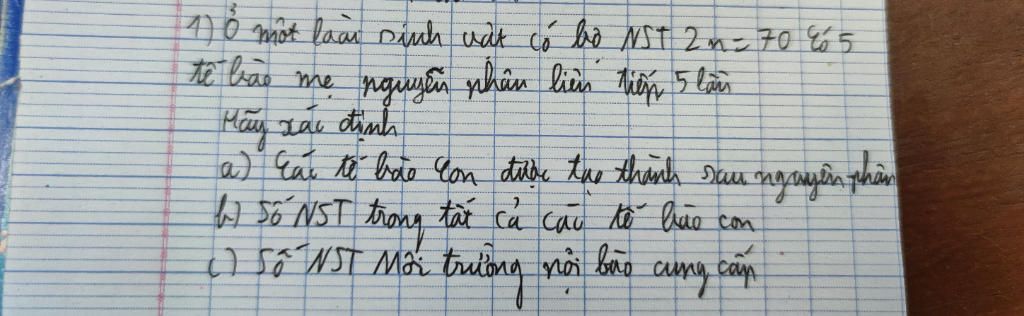 1) Ở một loài sinh vật có bộ NST 2n = 70 có 5
tế bào mẹ nguyễn phân liên tiếp 5 lần
Hãy xác định
a) Các tế bào con được tạo thành sau nguyên phân
b) Số NST trong tất cả các tế bào con
c) Số NST Môi trường nội bào cung cấp